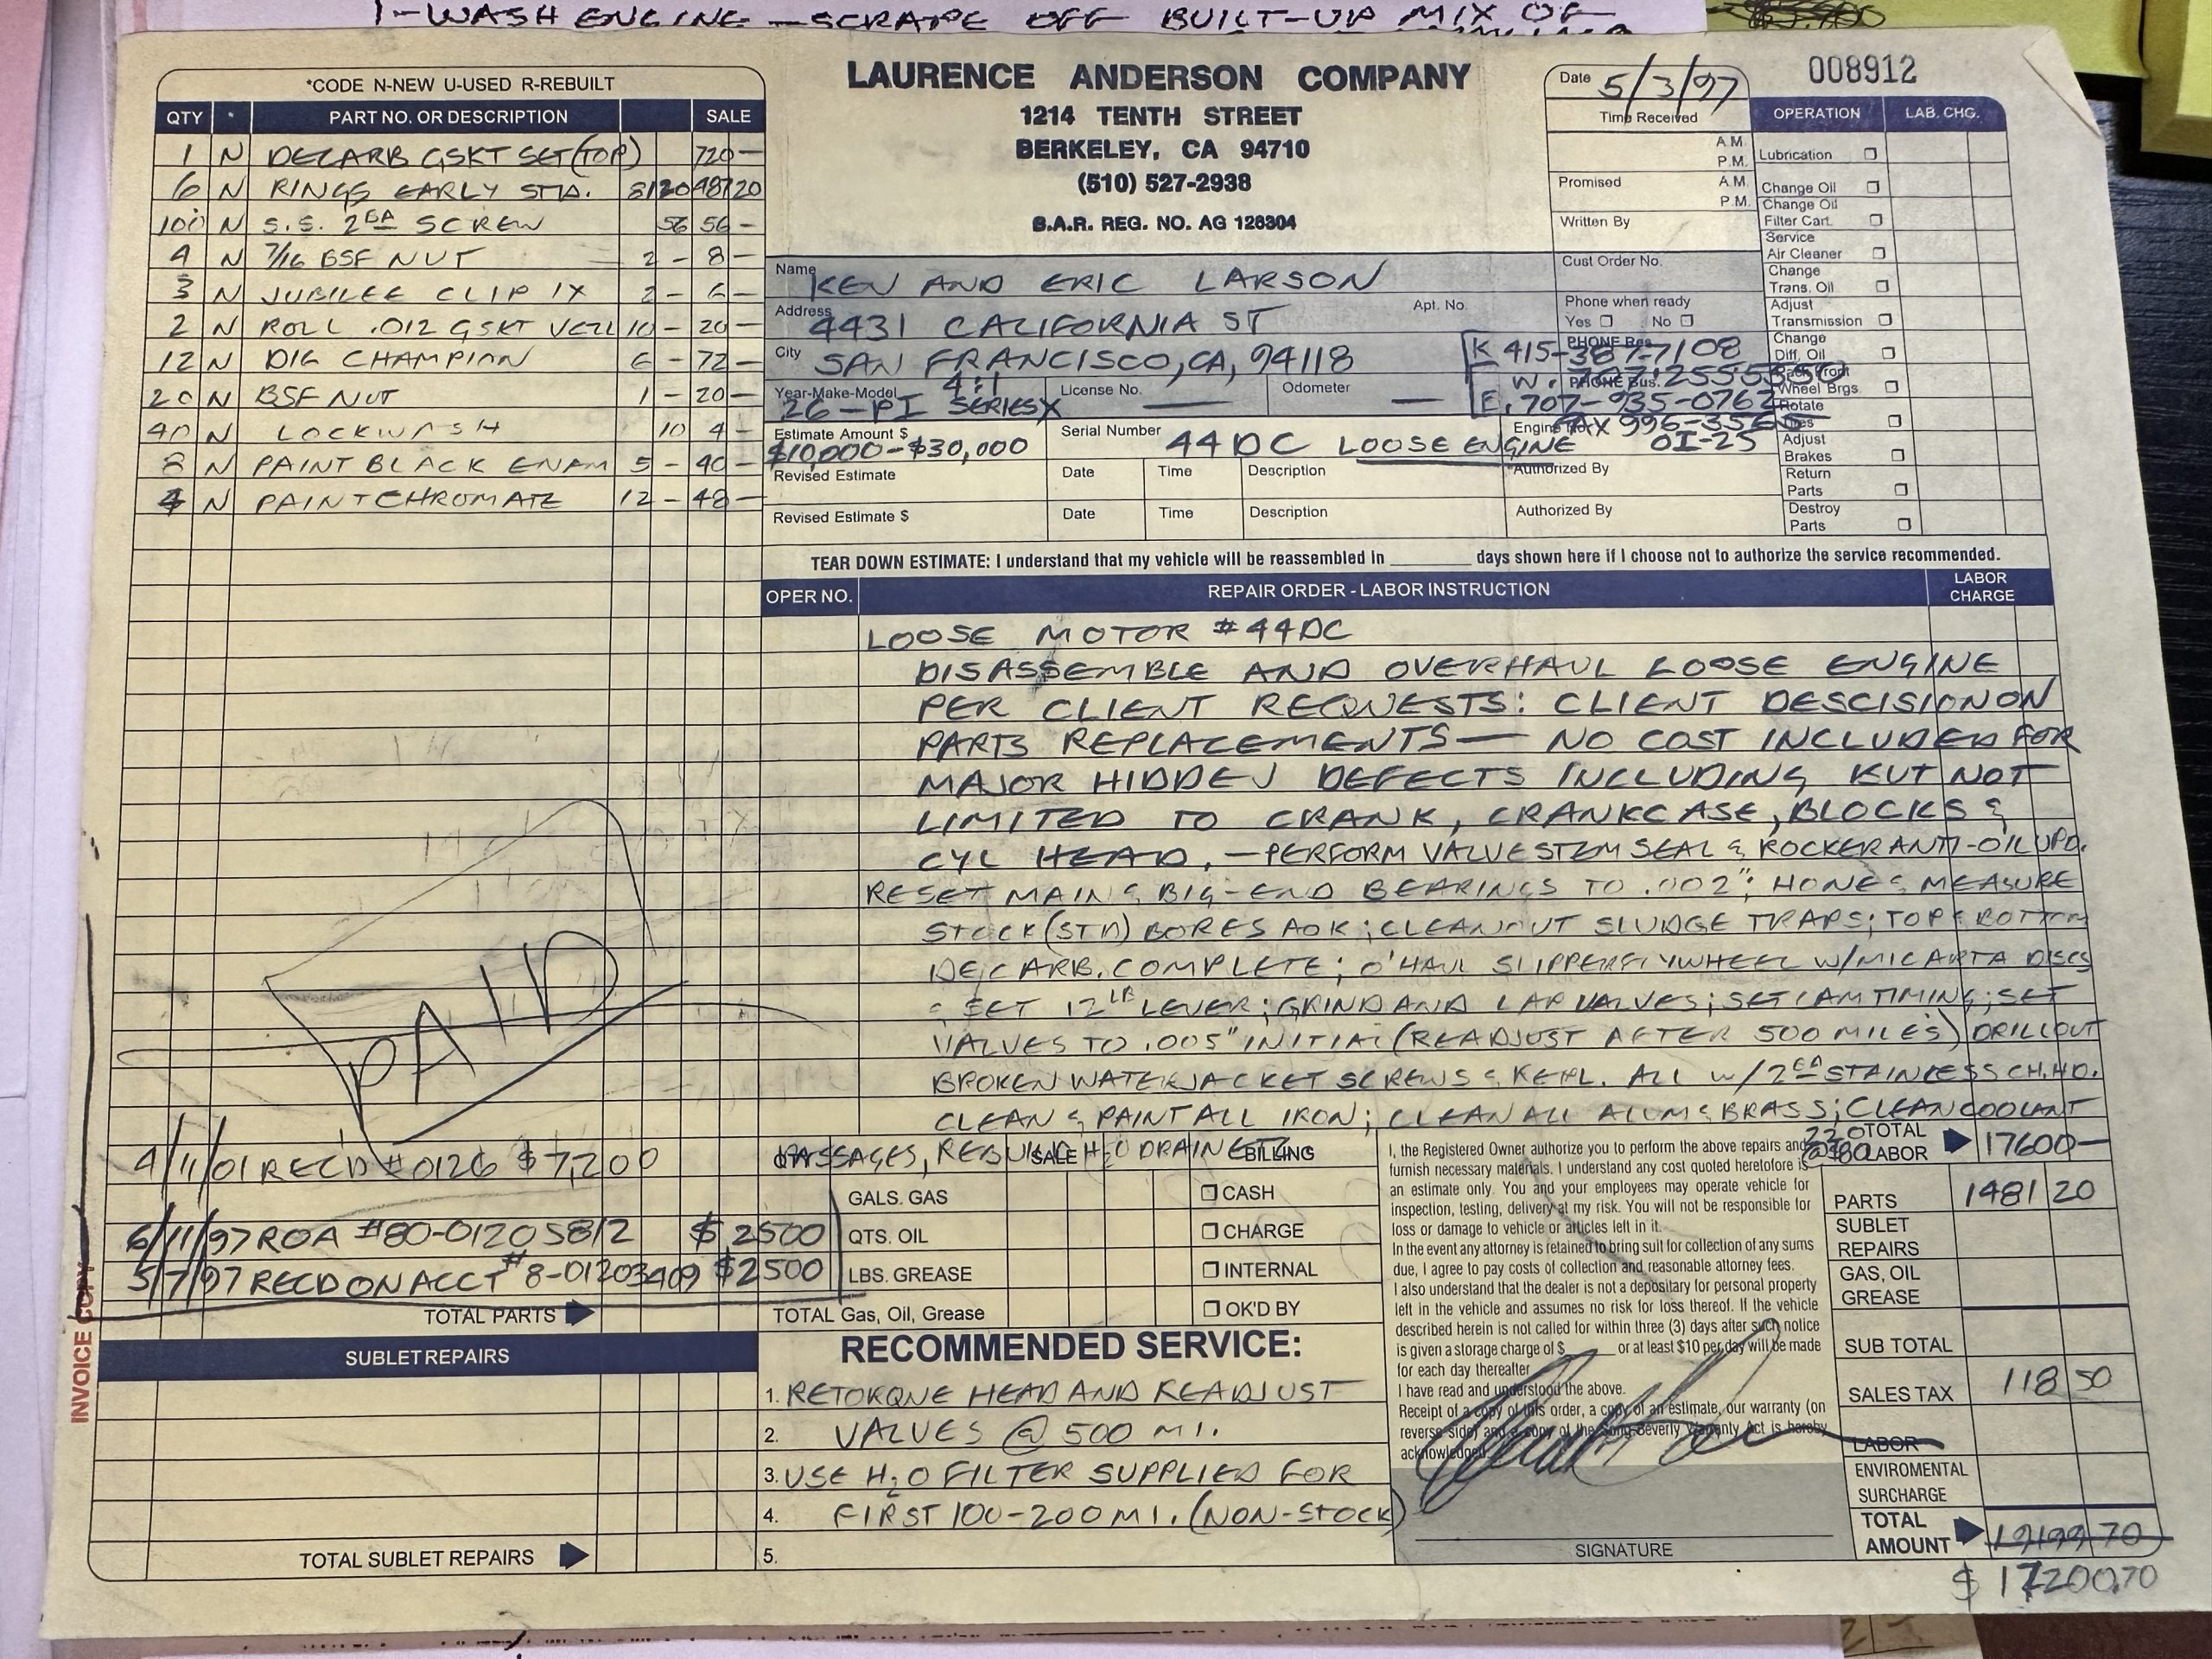 1-WASH ENGINE - SCRAPE OFF BUILT-UP MIX OF
*CODE N-NEW U-USED R-REBUILT
QTY * PART NO. OR DESCRIPTION SALE
1 N DECARB GSKT SET (TOP) 720-
6 N RINGS EARLY STD. 81 20 487 20
100 N S.S. 2BA SCREW 56 56 -
4 N 7/16 BSF NUT 2 - 8 -
3 N JUBILEE CLIP 1X 2 - 6 -
2 N ROLL .012 GSKT 10 - 20 -
12 N D16 CHAMPION 6 - 72 -
20 N BSF NUT 1 - 20 -
40 N LOCKWASH 10 4 -
8 N PAINT BLACK ENAM 5 - 40 -
4 N PAINT CHROMATE 12 - 48 -
LAURENCE ANDERSON COMPANY
1214 TENTH STREET
BERKELEY, CA 94710
(510) 527-2938
B.A.R. REG. NO. AG 128304
Date 5/3/97
008912
Time Received
A.M.
P.M.
Promised A.M.
P.M.
Written By
OPERATION LAB. CHG.
Lubrication
Change Oil
Change Oil
Filter Cart.
Service
Air Cleaner
Change
Trans. Oil
Adjust
Transmission
Change
Diff. Oil
Pack Front
Wheel Brgs.
Rotate
Tires
Adjust
Brakes
Return
Parts
Destroy
Parts
Name KEN AND ERIC LARSON
Cust Order No.
Address 4431 CALIFORNIA ST Apt. No.
Phone when ready
Yes No
City SAN FRANCISCO, CA, 94118
PHONE Res. K 415-387-7108
PHONE Bus. W.
E. 707-935-0762
FAX
Year-Make-Model 26-PI SERIES X 4:1
License No. —
Odometer —
Estimate Amount $ $10,000-$30,000
Serial Number 44DC LOOSE ENGINE
Engine No. OI-25
Revised Estimate Date Time Description *Authorized By
Revised Estimate $ Date Time Description Authorized By
TEAR DOWN ESTIMATE: I understand that my vehicle will be reassembled in ________ days shown here if I choose not to authorize the service recommended.
OPER NO. REPAIR ORDER - LABOR INSTRUCTION LABOR CHARGE
LOOSE MOTOR #44DC
DISASSEMBLE AND OVERHAUL LOOSE ENGINE
PER CLIENT REQUESTS: CLIENT DESCISION ON
PARTS REPLACEMENTS — NO COST INCLUDED FOR
MAJOR HIDDEN DEFECTS INCLUDING BUT NOT
LIMITED TO CRANK, CRANKCASE, BLOCKS &
CYL HEAD. — PERFORM VALVE STEM SEAL & ROCKER ANTI-OIL UPD.
RESET MAIN & BIG-END BEARINGS TO .002"; HONE & MEASURE
STOCK (STD) BORES AOK; CLEANOUT SLUDGE TRAPS; TOP & BOTTOM
DECARB. COMPLETE; O'HAUL SLIPPER FLYWHEEL W/MICARTA DISCS
& SET 12 LB LEVER; GRIND AND LAP VALVES; SET CAM TIMING; SET
VALVES TO .005" INITIAL (READJUST AFTER 500 MILES) DRILL OUT
BROKEN WATERJACKET SCREWS & REPL. ALL W/ 2BA STAINLESS CH. HD.
CLEAN & PAINT ALL IRON; CLEAN ALL ALUM & BRASS; CLEAN COOLANT
PASSAGES, REBUILD H2O DRAIN ETC.
PAID
4/11/01 RECD #0126 $7,200
6/11/97 ROA #80-01205812 $2500
5/7/97 RECD ON ACCT #8-01203409 $2500
INVOICE COPY
TOTAL PARTS
SUBLET REPAIRS
TOTAL SUBLET REPAIRS
SALE BILLING
GALS. GAS CASH
QTS. OIL CHARGE
LBS. GREASE INTERNAL
TOTAL Gas, Oil, Grease OK'D BY
RECOMMENDED SERVICE:
1. RETORQUE HEAD AND READJUST
2. VALVES @ 500 MI.
3. USE H2O FILTER SUPPLIED FOR
4. FIRST 100-200 MI. (NON-STOCK)
5.
I, the Registered Owner authorize you to perform the above repairs and
furnish necessary materials. I understand any cost quoted heretofore is
an estimate only. You and your employees may operate vehicle for
inspection, testing, delivery at my risk. You will not be responsible for
loss or damage to vehicle or articles left in it.
In the event any attorney is retained to bring suit for collection of any sums
due, I agree to pay costs of collection and reasonable attorney fees.
I also understand that the dealer is not a depositary for personal property
left in the vehicle and assumes no risk for loss thereof. If the vehicle
described herein is not called for within three (3) days after such notice
is given a storage charge of $______ or at least $10 per day will be made
for each day thereafter
I have read and understood the above.
Receipt of a copy of this order, a copy of an estimate, our warranty (on
reverse side) and a copy of the Song-Beverly Warranty Act is hereby
acknowledged.
SIGNATURE
220 @ $80 TOTAL LABOR 17600-
PARTS 1481 20
SUBLET REPAIRS
GAS, OIL GREASE
SUB TOTAL
SALES TAX 118 50
LABOR
ENVIROMENTAL SURCHARGE
TOTAL AMOUNT 19199 70
$17200.70